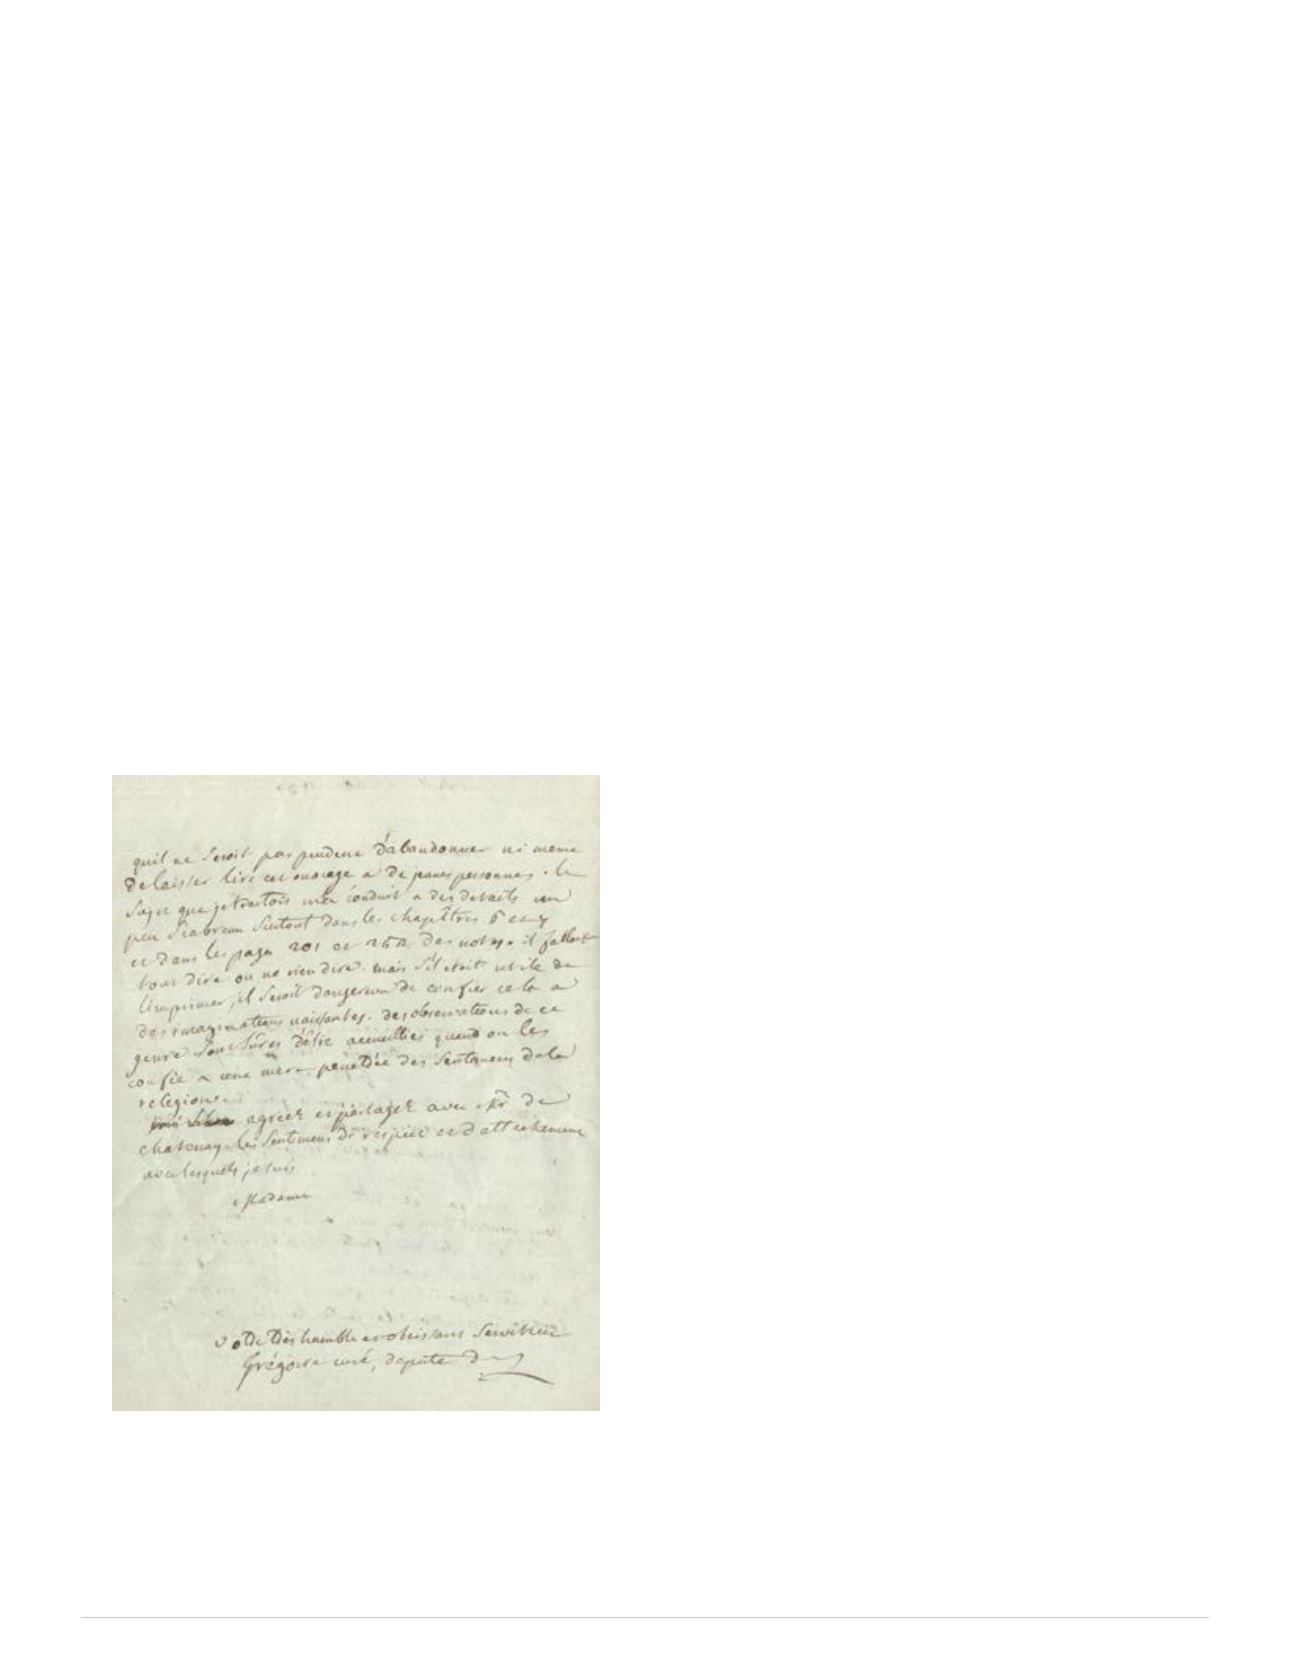 quil ne seroit pas prudent d'abandonner ni meme
de laisser lire cet ouvrage a de jeunes personnes. le
sujet que je traitois m'a conduit a des details un
peu scabreux surtout dans les chapîtres 6 et 7
et dans les pages 201 et des notes. il falloit
tout dire ou ne rien dire. mais s'il etoit utile de
l'imprimer, il seroit dangereux de confier cela a
des imaginations naissantes. des observations de ce
genre sont sûres d'être accueillies quand on les
confie a une mere penetrée des sentimens de la
religion.
agreez et partagez avec Mr de
chatenay les sentimens de respect et d'attachement
avec lesquels je suis
Madame
votre très humble et obeissant serviteur
Grégoire curé, deputé